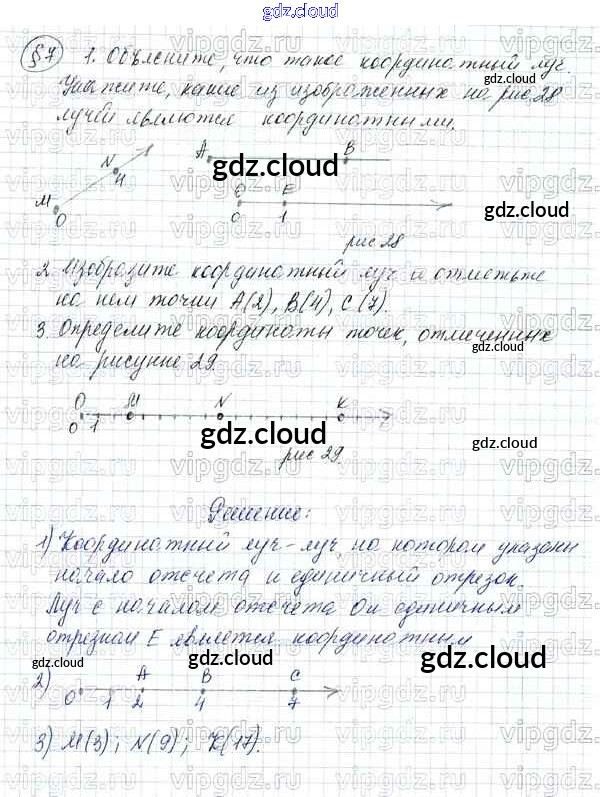 gdz.cloud
§7 1. Объясните, что такое координатный луч.
Укажите, какие из изображенных на рис. 28
лучей являются координатными.
M O N 4 A B
O E
0 1
рис 28
2. Изобразите координатный луч и отметьте
на нем точки A(2), B(4), C(7).
3. Определите координаты точек, отмеченных
на рисунке 29.
O M N K
0 1
рис 29
Решение:
1) Координатный луч - луч, на котором указаны
начало отсчета и единичный отрезок.
Луч с началом отсчета O и единичным
отрезком E является координатным
2) A B C
0 1 2 4 7
3) M(3); N(9); K(17).